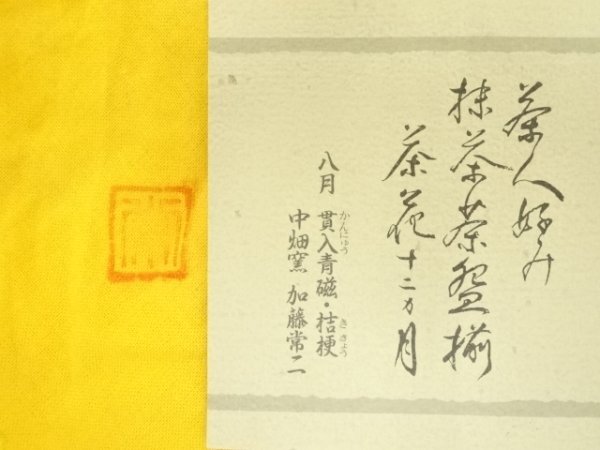 茶人好み
抹茶茶盌揃
茶花十二カ月
八月 貫入青磁・桔梗
かんにゅう
ききょう
中畑窯 加藤常二